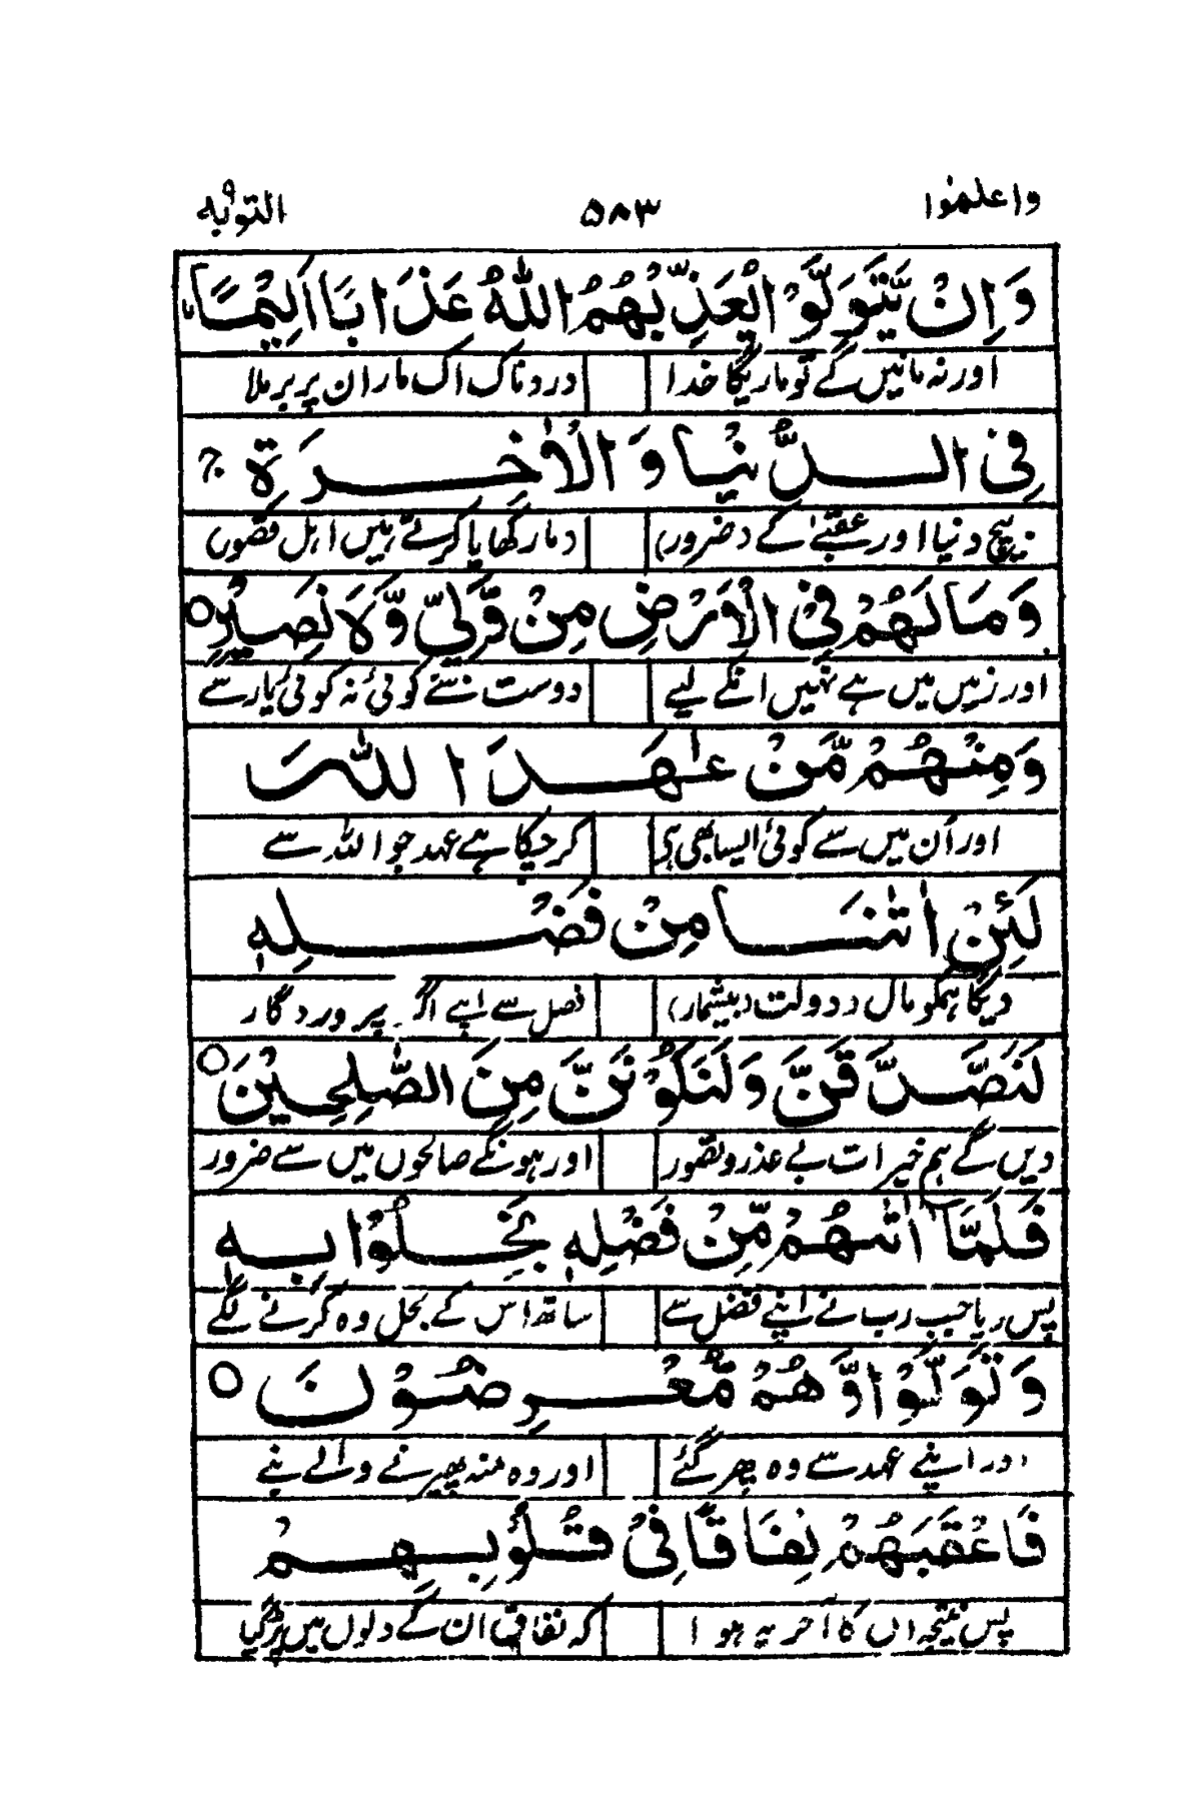 واعلموا ۵۸۳ التوبه ۹
وَاِنْ يَّتَوَلَّوْا يُعَذِّبْهُمُ اللّٰهُ عَذَابًا اَلِيْمًا
اور نہ مانیں گے تو ماریگا خدا دردناک اک مار ان پر برملا
فِی الدُّنْيَا وَالْاٰخِرَةِ ج
بیچ دنیا اور عقبےٰ کے (ضرور) مار کھایا کرتے ہیں اہل قصوں
وَمَا لَهُمْ فِی الْاَرْضِ مِنْ وَّلِیٍّ وَّلَا نَصِيْرٍ ○
اور زمیں میں ہے نہیں انکے لیے دوست نے کوئی نہ کوئی یار سے
وَمِنْهُمْ مَّنْ عٰهَدَ اللّٰهَ
اور اُن میں سے کوئی ایسا بھی ہے کر چکا ہے عہد جو اللہ سے
لَئِنْ اٰتٰنَا مِنْ فَضْلِهٖ
دیگا ہمکو مال و دولت (بیشمار) فصل سے اپنے اگر پروردگار
لَنَصَّدَّقَنَّ وَلَنَكُوْنَنَّ مِنَ الصّٰلِحِيْنَ ○
دیں گے ہم خیرات بے عذر و قصور اور ہونگے صالحوں میں سے ضرور
فَلَمَّآ اٰتٰهُمْ مِّنْ فَضْلِهٖ بَخِلُوْا بِهٖ
پس دیا جب رب نے اپنے فضل سے ساتھ اس کے بخل وہ کرنے لگے
وَتَوَلَّوْا وَّهُمْ مُّعْرِضُوْنَ ○
اور اپنے عہد سے وہ پھر گئے اور وہ منہ پھیرنے والے بنے
فَاَعْقَبَهُمْ نِفَاقًا فِیْ قُلُوْبِهِمْ
پس نتیجہ اس کا آخر یہ ہوا کہ نفاق ان کے دلوں میں پڑ گیا